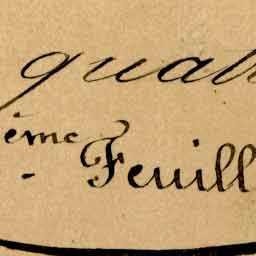 quat
ème Feuill